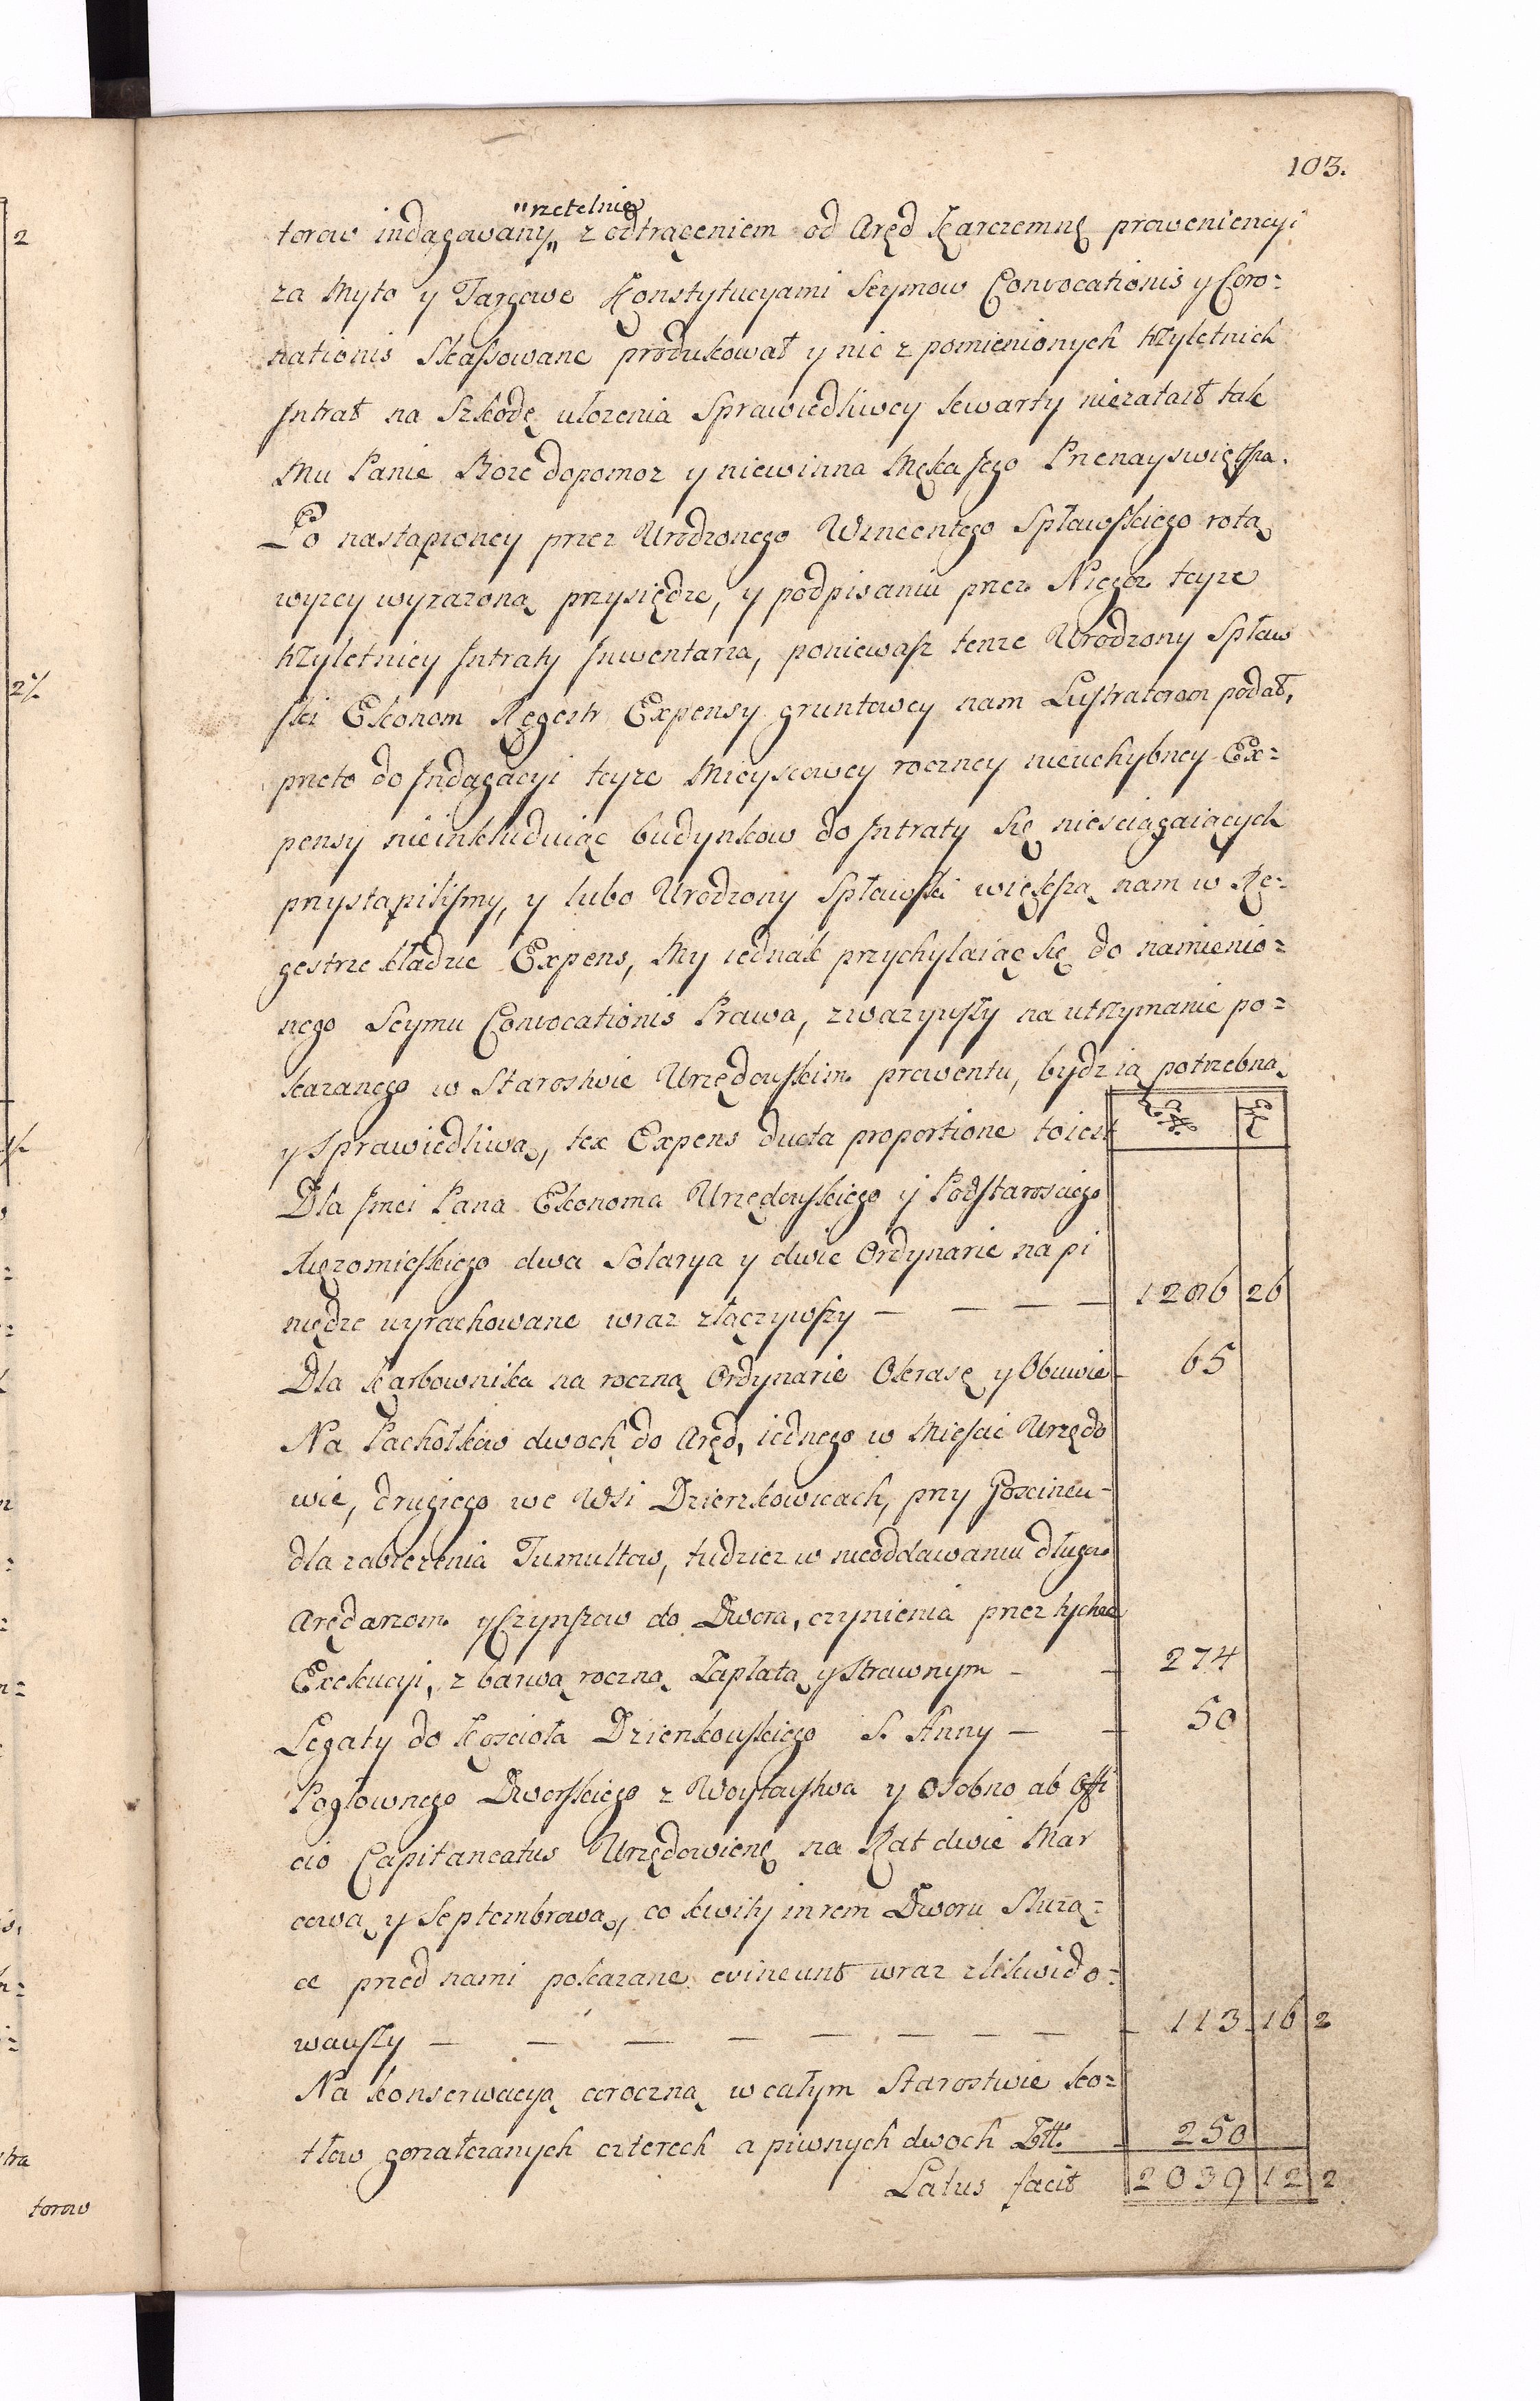 103.
"rzetelnie
torow indagowany„ z odtrąceniem od Aręd Karczemnę proweniencyi
za Myto y Targowe Konstytucyami Seymow Convocationis y Coro=
nationis Skassowane produkował y nic z pomienionych trzyletnich
Intrat na Szkodę ułozenia Sprawiedliwey kwarty niezataił tak
Mu Panie Boze dopomoz y niewinna Męka Jego Przenayswiętsza.
Po nastąpioney przez Urodzonego Wincentego Spławskiego rotą
wyzey wyrazoną przysiędze, y podpisaniu przez Niego teyze
trzyletniey Intraty Inwentarza, poniewasz tenze Urodzony Spław
ski Ekonom Regestr Expensy gruntowey nam Lustratorom podał,
przeto do Indagacyi teyze Mieyscowey roczney nieuchybney Ex=
pensy nieinkluduiąc budynkow do Intraty Się niesciągaiących
przystąpilismy, y lubo Urodzony Spławski większą nam w Re=
gestrze kładzie Expens, My iednak przychylaiąc się do namienio=
nego Seymu Convocationis Prawa, zwazywszy na utrzymanie po=
kazanego w Starostwie Urzędowskim prowentu, bydz ią potrzebną
y Sprawiedliwą, tex Expens ducta proportione to iest
Dla Jmci Pana Ekonoma Urzędowskiego y Podstarosciego
dwa Solarya y dwie Ordynarie na pi
niędze wyrachowane wraz złączywszy — — — — 1206 26
Dla karbownika na roczną Ordynarie Okrasę y Obuwie - 65
Na Pachołkow dwoch do Aręd, iednego w Miescie Urzędo
wie, drugiego we Wsi Dzierzkowicach, przy Goscincu-
dla zabiezenia Tumultow, tudziez w nieoddawaniu długow
Arędarzom y Czynszow do Dwora, czynienia przez tychze
Exekucyi, z barwą roczną Zapłatą y Strawnym - - 274
Legaty do Koscioła Dzierzkowskiego S. Anny — - 50
Pogłownego Dworskiego z Woytowstwa y Osobno ab Offi
cio Capitaneatus Urzędoviens na Rat dwie Mar
cową y Septembrową, co kwity in rem Dworu Słuzą=
ce przed nami pokazane evincunt wraz zlikwido=
wawszy — — — — — — — — - 113 16 2
Na konserwacyą coroczną w całym Starostwie ko=
tłow gorzałczanych czterech a piwnych dwoch Złł. - 250
Latus facit 2039 12 2
2
2½
torow